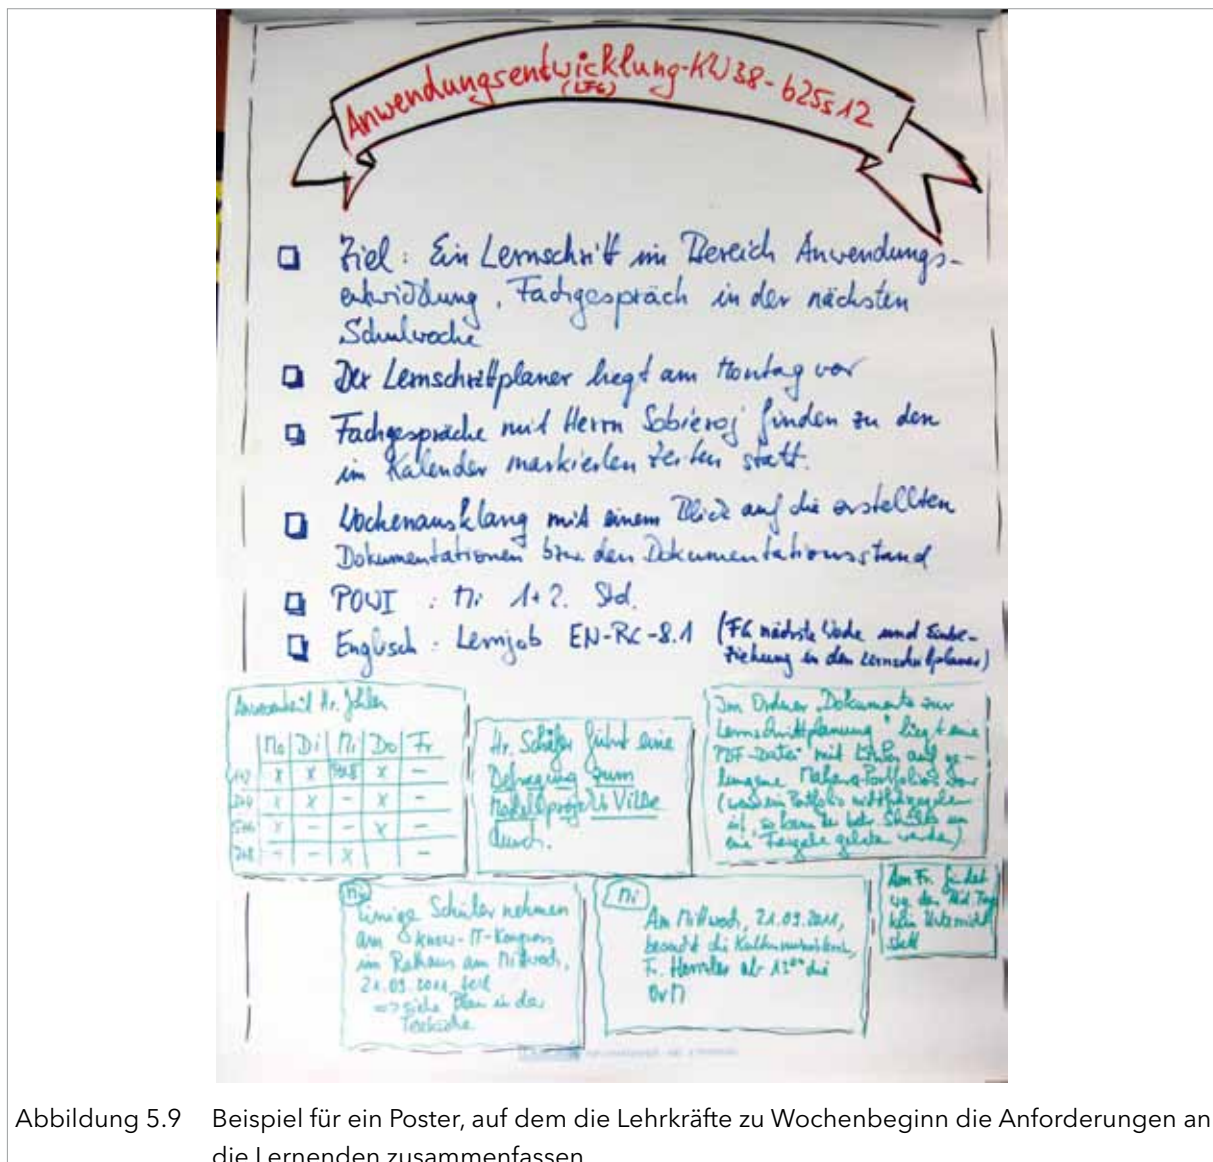 Anwendungsentwicklung-KW38-b25s12
(LF6)
Ziel: Ein Lernschritt im Bereich Anwendungs-
entwicklung, Fachgespräch in der nächsten
Schulwoche
Der Lernschrittplaner liegt am Montag vor
Fachgespräche mit Herrn Sobieroj finden zu den
im Kalender markierten Zeiten statt.
Wochenausklang mit einem Blick auf die erstellten
Dokumentationen bzw. den Dokumentationsstand
POWI : Mi 1+2. Std.
Englisch : Lernjob EN-RC-8.1 (FG nächste Woche und Einbe-
ziehung in den Lernschrittplaner)
Anwesenheit Hr.
Mo Di Mi Do Fr
x x x -
x x - x -
x - - x -
- - x -
Hr. Schäfer führt eine
Befragung zum
Modellprojekt VilBe
durch.
Im Ordner "Dokumente zur
Lernschrittplanung" liegt eine
PDF-Datei mit Links auf ge-
lungene Mahara-Portfolios vor
(wenn ein Portfolio nicht
ist, so kann der Schüler um
eine Freigabe gebeten werden)
Mi
Einige Schüler nehmen
am know-IT-Kongress
im Rathaus am Mittwoch,
21.09.2011 teil
=> siehe Plan in der
Teeküche
Mi
Am Mittwoch, 21.09.2011,
besucht die Kultusministerin,
Fr. Henzler ab 13⁰⁰ die
OvM
Am Fr. findet
wg. des Päd. Tags
kein Unterricht
statt
Abbildung 5.9 Beispiel für ein Poster, auf dem die Lehrkräfte zu Wochenbeginn die Anforderungen an
die Lernenden zusammenfassen